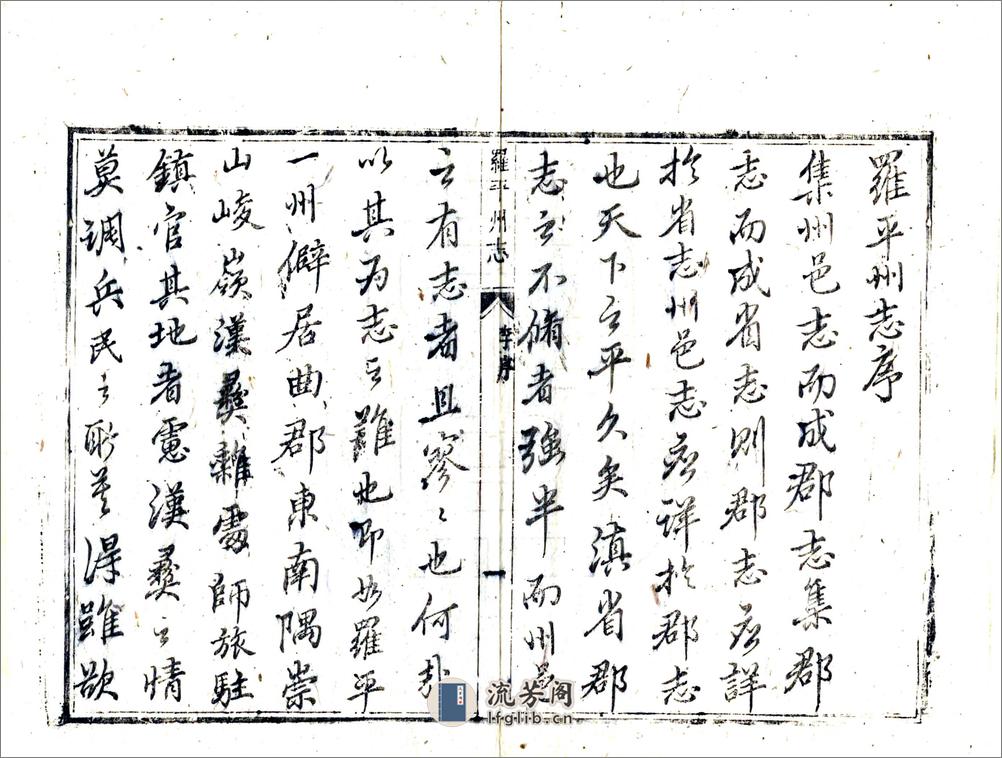 羅平州志序
集州邑志而成郡志集郡
志而成省志則郡志應詳
於省志州邑志應詳於郡志
也天下之平久矣滇省郡
志之不脩者強半而州邑
羅平州志
李序
一
之有志者且寥〻也何哉
以其为志之難也即如羅平
一州僻居曲郡東南隅崇
山峻嶺漢彝雜處師旅駐
鎮官其地者慮漢彝之情
莫調兵民之莫得雖欲
流芳阁
lfglib.cn